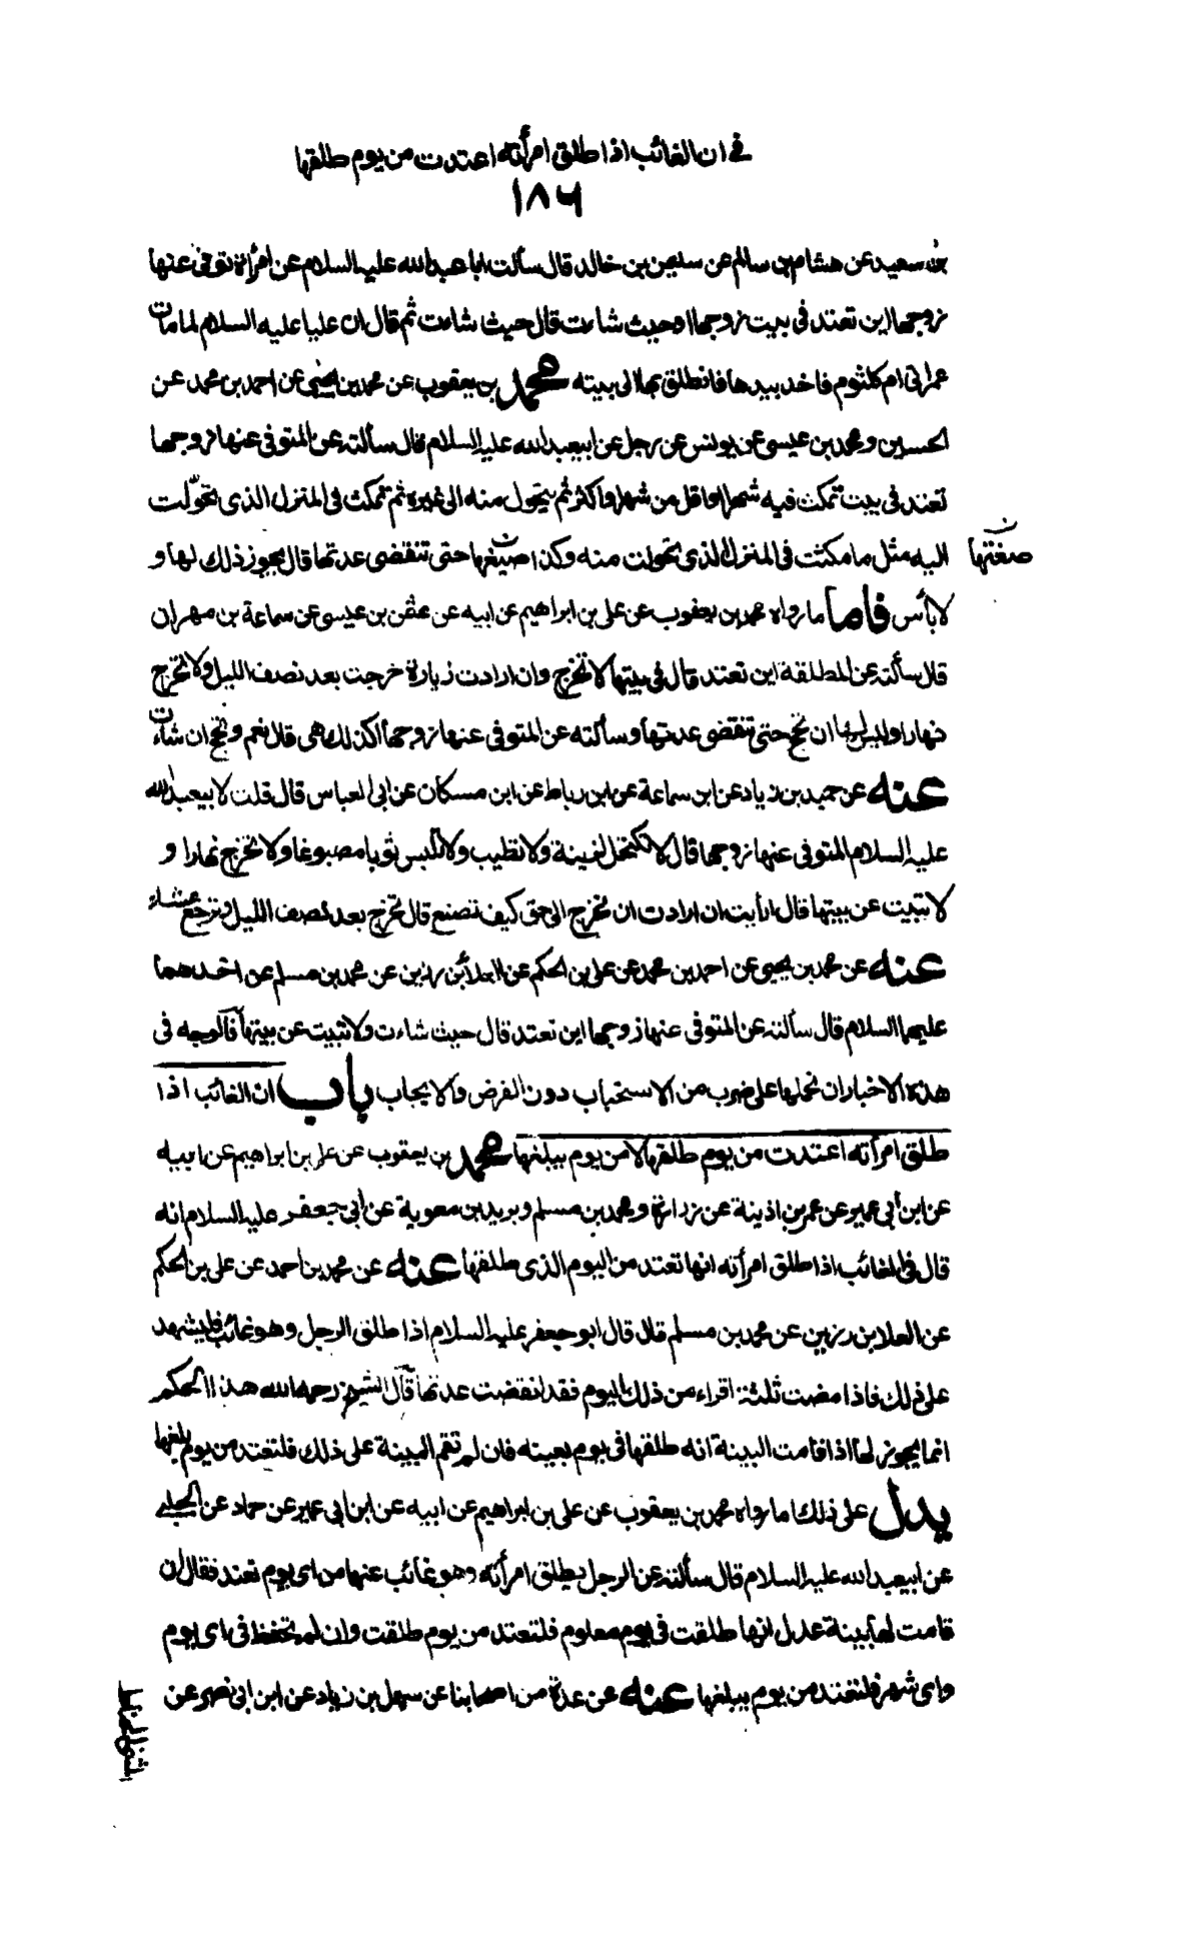 في ان الغائب اذا طلق امرأته اعتدت من يوم طلقها
١٨٦
بن سعيد عن هشام بن سالم عن سليمن بن خالد قال سألت ابا عبدالله عليه السلام عن امرأة توفى عنها
زوجها اين تعتد فى بيت زوجها او حيث شاءت قال حيث شاءت ثم قال ان عليا عليه السلام لما مات
عمر اتى ام كلثوم فاخذ بيدها فانطلق بها الى بيته محمد بن يعقوب عن محمد بن يحيى عن احمد بن محمد عن
الحسين و محمد بن عيسى عن يونس عن رجل عن ابيعبدالله عليه السلام قال سألته عن المتوفى عنها زوجها
تعتد فى بيت تمكث فيه شهرا او اقل من شهر او اكثر ثم يتحول منه الى غيره ثم تمكث فى المنزل الذى تحولت
اليه مثل ما مكثت فى المنزل الذى تحولت منه و كذا صنيعها حتى تنقضى عدتها قال يجوز ذلك لها و
صنعتها ن
لا بأس فاما ما رواه محمد بن يعقوب عن على بن ابراهيم عن ابيه عن عثمن بن عيسى عن سماعة بن مهران
قال سألته عن المطلقة اين تعتد قال فى بيتها لا تخرج وان ارادت زيارة خرجت بعد نصف الليل ولا تخرج
نهارا وليس لها ان تحج حتى تنقضى عدتها وسألته عن المتوفى عنها زوجها اكذلك هى قال نعم وتحج ان شاءت
عنه عن حميد بن زياد عن ابن سماعة عن ابن رباط عن ابن مسكان عن ابى العباس قال قلت لابيعبدالله
عليه السلام المتوفى عنها زوجها قال لا تكتحل لزينة ولا تطيب ولا تلبس ثوبا مصبوغا ولا تخرج نهارا و
لا تبيت عن بيتها قال ارأيت ان ارادت ان تخرج الى حق كيف تصنع قال تخرج بعد نصف الليل وترجع عشاء
عنه عن محمد بن يحيى عن احمد بن محمد عن على بن الحكم عن العلاء بن رزين عن محمد بن مسلم عن احدهما
عليهما السلام قال سألته عن المتوفى عنها زوجها اين تعتد قال حيث شاءت ولا تبيت عن بيتها فالوجه فى
هذه الاخبار ان نحملها على ضرب من الاستحباب دون الفرض والايجاب باب ان الغائب اذا
طلق امرأته اعتدت من يوم طلقها لا من يوم يبلغها محمد بن يعقوب عن على بن ابراهيم عن ابيه
عن ابن أبى عمير عن عمر بن اذينة عن زرارة و محمد بن مسلم و بريد بن معوية عن أبى جعفر عليه السلام انه
قال فى الغائب اذا طلق امرأته انها تعتد من اليوم الذى طلقها عنه عن محمد بن احمد عن على بن الحكم
عن العلا بن رزين عن محمد بن مسلم قال قال ابو جعفر عليه السلام اذا طلق الرجل و هو غائب فليشهد
على ذلك فاذا مضت ثلثة اقراء من ذلك اليوم فقد انقضت عدتها قال الشيخ رحمه الله هذا الحكم
انما يجوز لها اذا قامت البينة انه طلقها فى يوم بعينه فان لم تقم البينة على ذلك فلتعتد من يوم يبلغها
يدل على ذلك ما رواه محمد بن يعقوب عن على بن ابراهيم عن ابيه عن ابن أبى عمير عن حماد عن الحلبى
عن ابيعبدالله عليه السلام قال سألته عن الرجل يطلق امرأته وهو غائب عنها من اى يوم تعتد فقال ان
قامت لها بينة عدل انها طلقت فى يوم معلوم فلتعتد من يوم طلقت وان لم تحفظ فى اى يوم
واى شهر فلتعتد من يوم يبلغها عنه عن عدة من اصحابنا عن سهل بن زياد عن ابن ابى نصر عن
المثنى الحناط